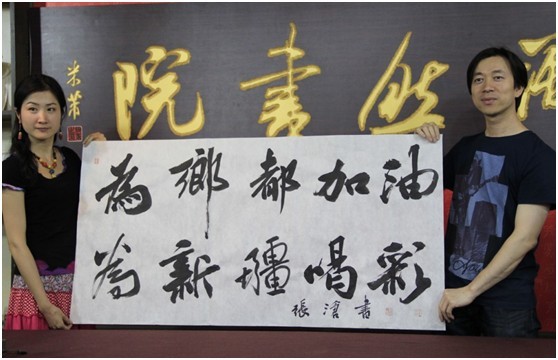 然書院
米芾
為鄉都加油
為新疆喝彩
張滄書